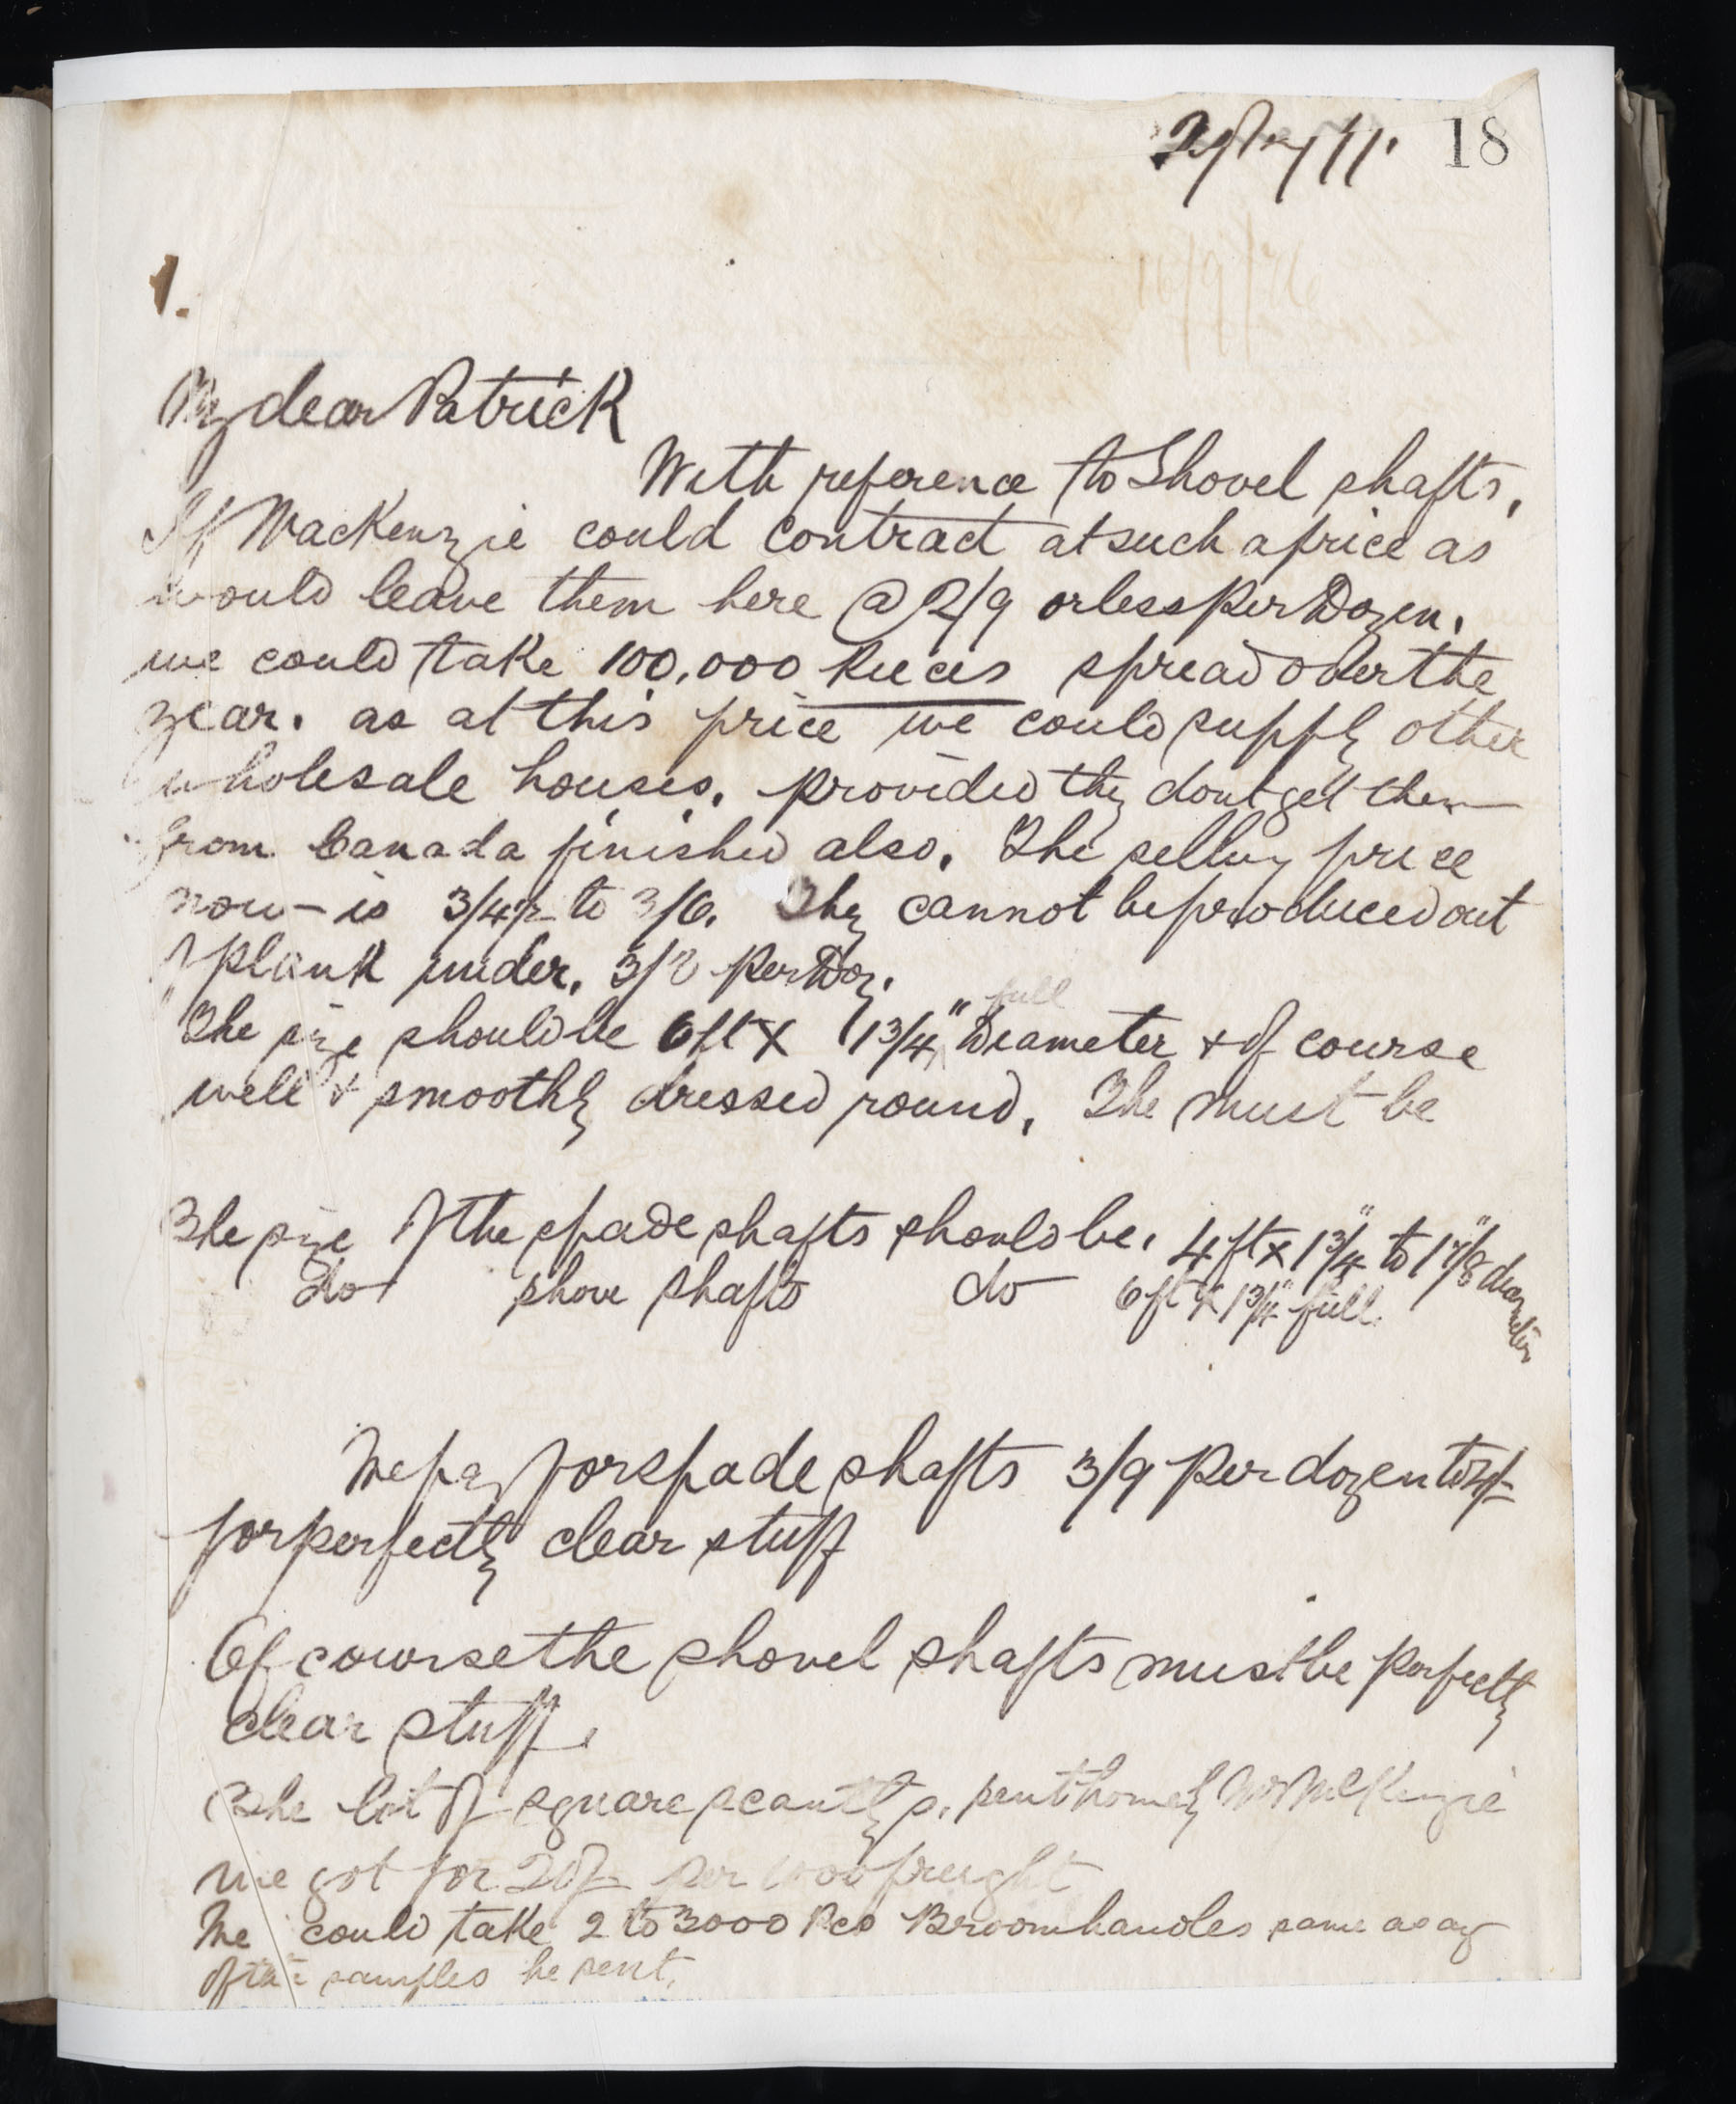 18
1.
My dear Patrick
With reference to Shovel shafts,
If MacKenzie could contract at such a price as
would leave them here @ 2/9 or less per Dozen.
we could take 100,000 pieces spread over the
year. as at this price we could supply other
wholesale houses. provided they dont get them
from Canada finished also. The selling price
now is 3/4½ to 3/6. They cannot be produced out
of plank under. 3/3 per Doz.
The size should be 6ft x 1 3/4" full Diameter & of course
well & smoothly dressed round. The must be
The size of the spade shafts should be. 4ft x 1 3/4" to 1 7/8" diameter
do shove shafts do 6ft x 1 3/4" full.
We pay for spade shafts 3/9 per dozen to
for perfectly clear stuff
Of course the shovel shafts must be perfectly
clear stuff.
The lot of square scantlgs. sent home by Mr McKenzie
we got for 20/- per 1000 freight
We could take 2 to 3000 pcs Broomhandles same as any
of the samples he sent.